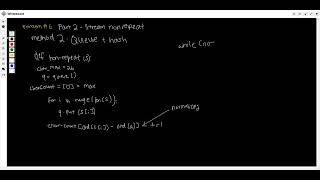 Part 2 - Stream nonrepeat
method 2 : Queue + hash
while (no
def nonrepeat (s)
char_max = 26
q = queue ( )
charCount = [0] * max
for i in range (len(s)):
q.put (s[i])
char_count [ord(s[i]) - ord(a)] += 1